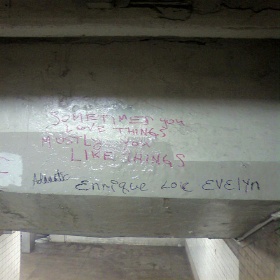 SOMETIMES you
LOVE THINGS
MOSTLY YOU
LIKE THINGS
Ennique LOVE EVELYN